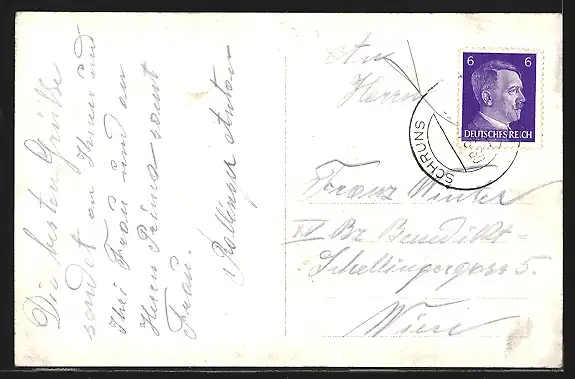 Die besten Grüße
sendet an Ihnen und
Ihre Frau und an
Herrn Prinz samt
Frau.
Rollinger Anton
An
Herrn
Franz Winter
XV Bz Benedikt-
Schellingergass 5.
Wien
SCHRUNS
6 6
DEUTSCHES REICH